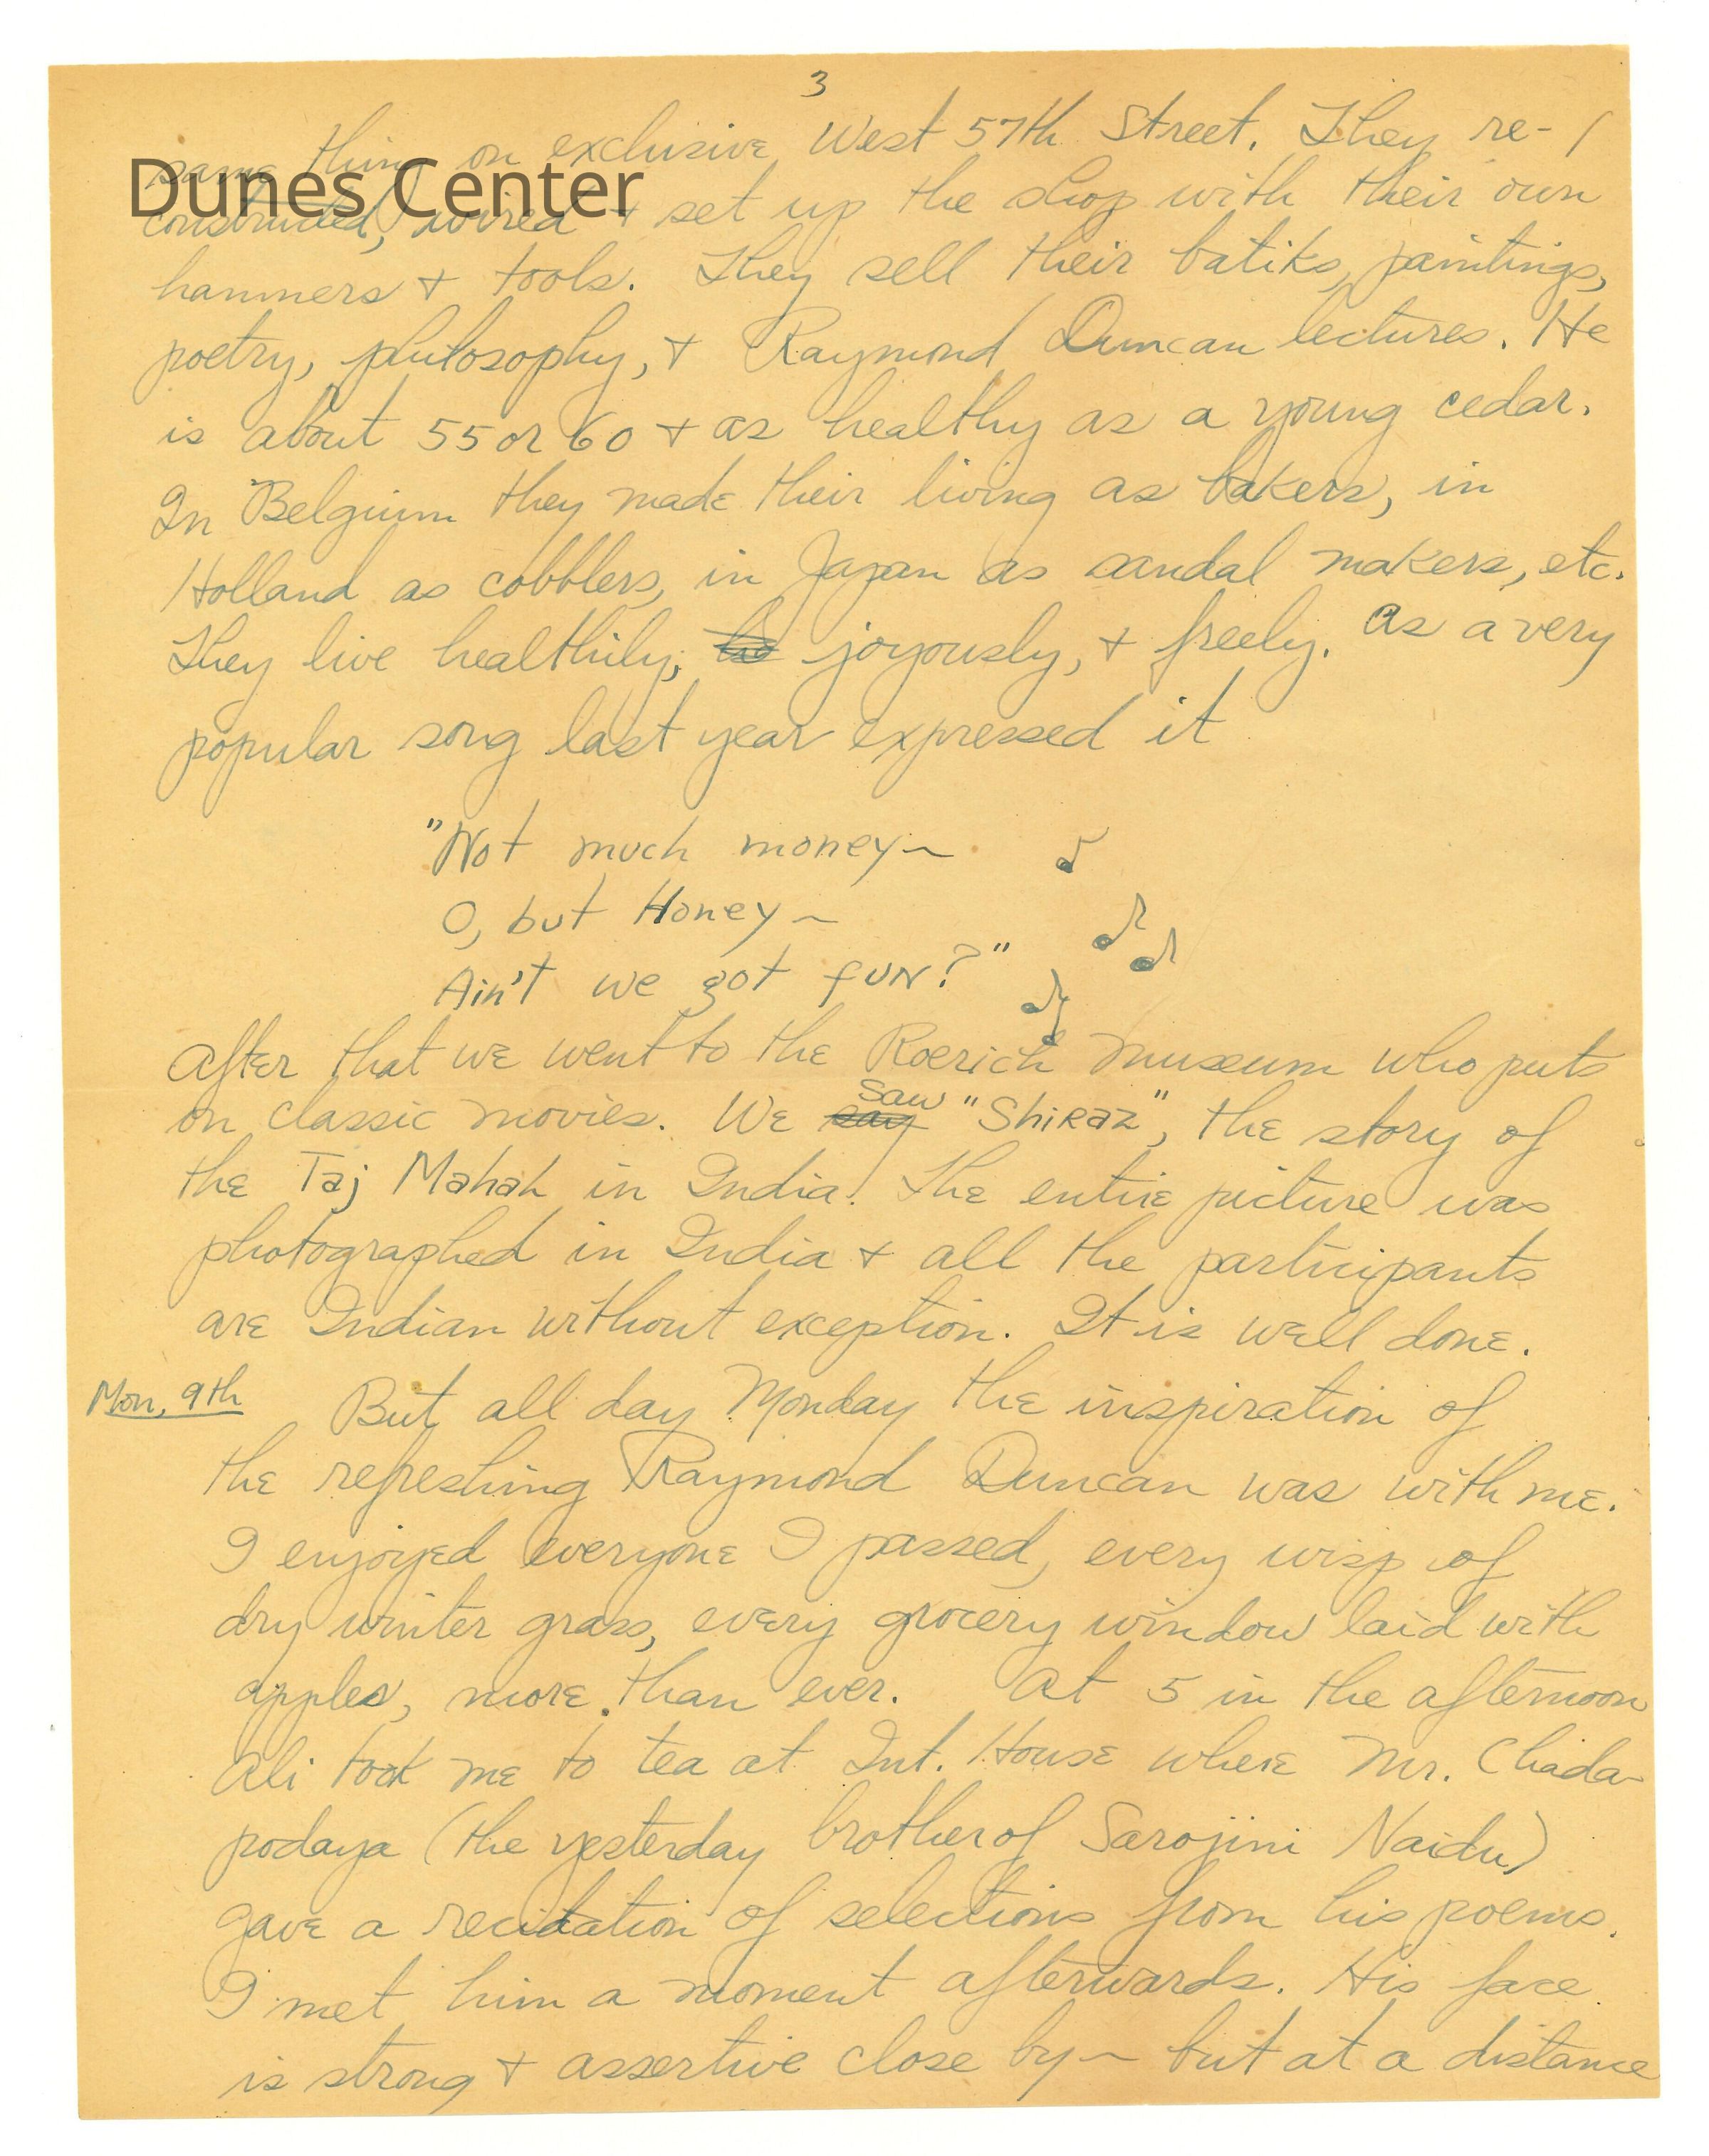 3
same thing on exclusive West 57th Street. They re-
Dunes Center
constructed, wired + set up the shop with their own
hammers + tools. They sell their batiks, paintings,
poetry, philosophy, + Raymond Duncan lectures. He
is about 55 or 60 + as healthy as a young cedar.
In Belgium they made their living as bakers, in
Holland as cobblers, in Japan as sandal makers, etc.
They live healthily, joyously, + freely. As a very
popular song last year expressed it
"Not much money~
O, but Honey~
Ain't we got fun?"
After that we went to the Roerich Museum who puts
on classic movies. We say saw "Shiraz", the story of
the Taj Mahah in India. The entire picture was
photographed in India + all the participants
are Indian without exception. It is well done.
Mon, 9th But all day Monday the inspiration of
the refreshing Raymond Duncan was with me.
I enjoyed everyone I passed, every wisp of
dry winter grass, every grocery window laid with
apples, more than ever. At 5 in the afternoon
Ali took me to tea at Int. House where Mr. Chada-
podaya (the yesterday brother of Sarojini Naidu)
gave a recitation of selections from his poems.
I met him a moment afterwards. His face
is strong + assertive close by~ but at a distance